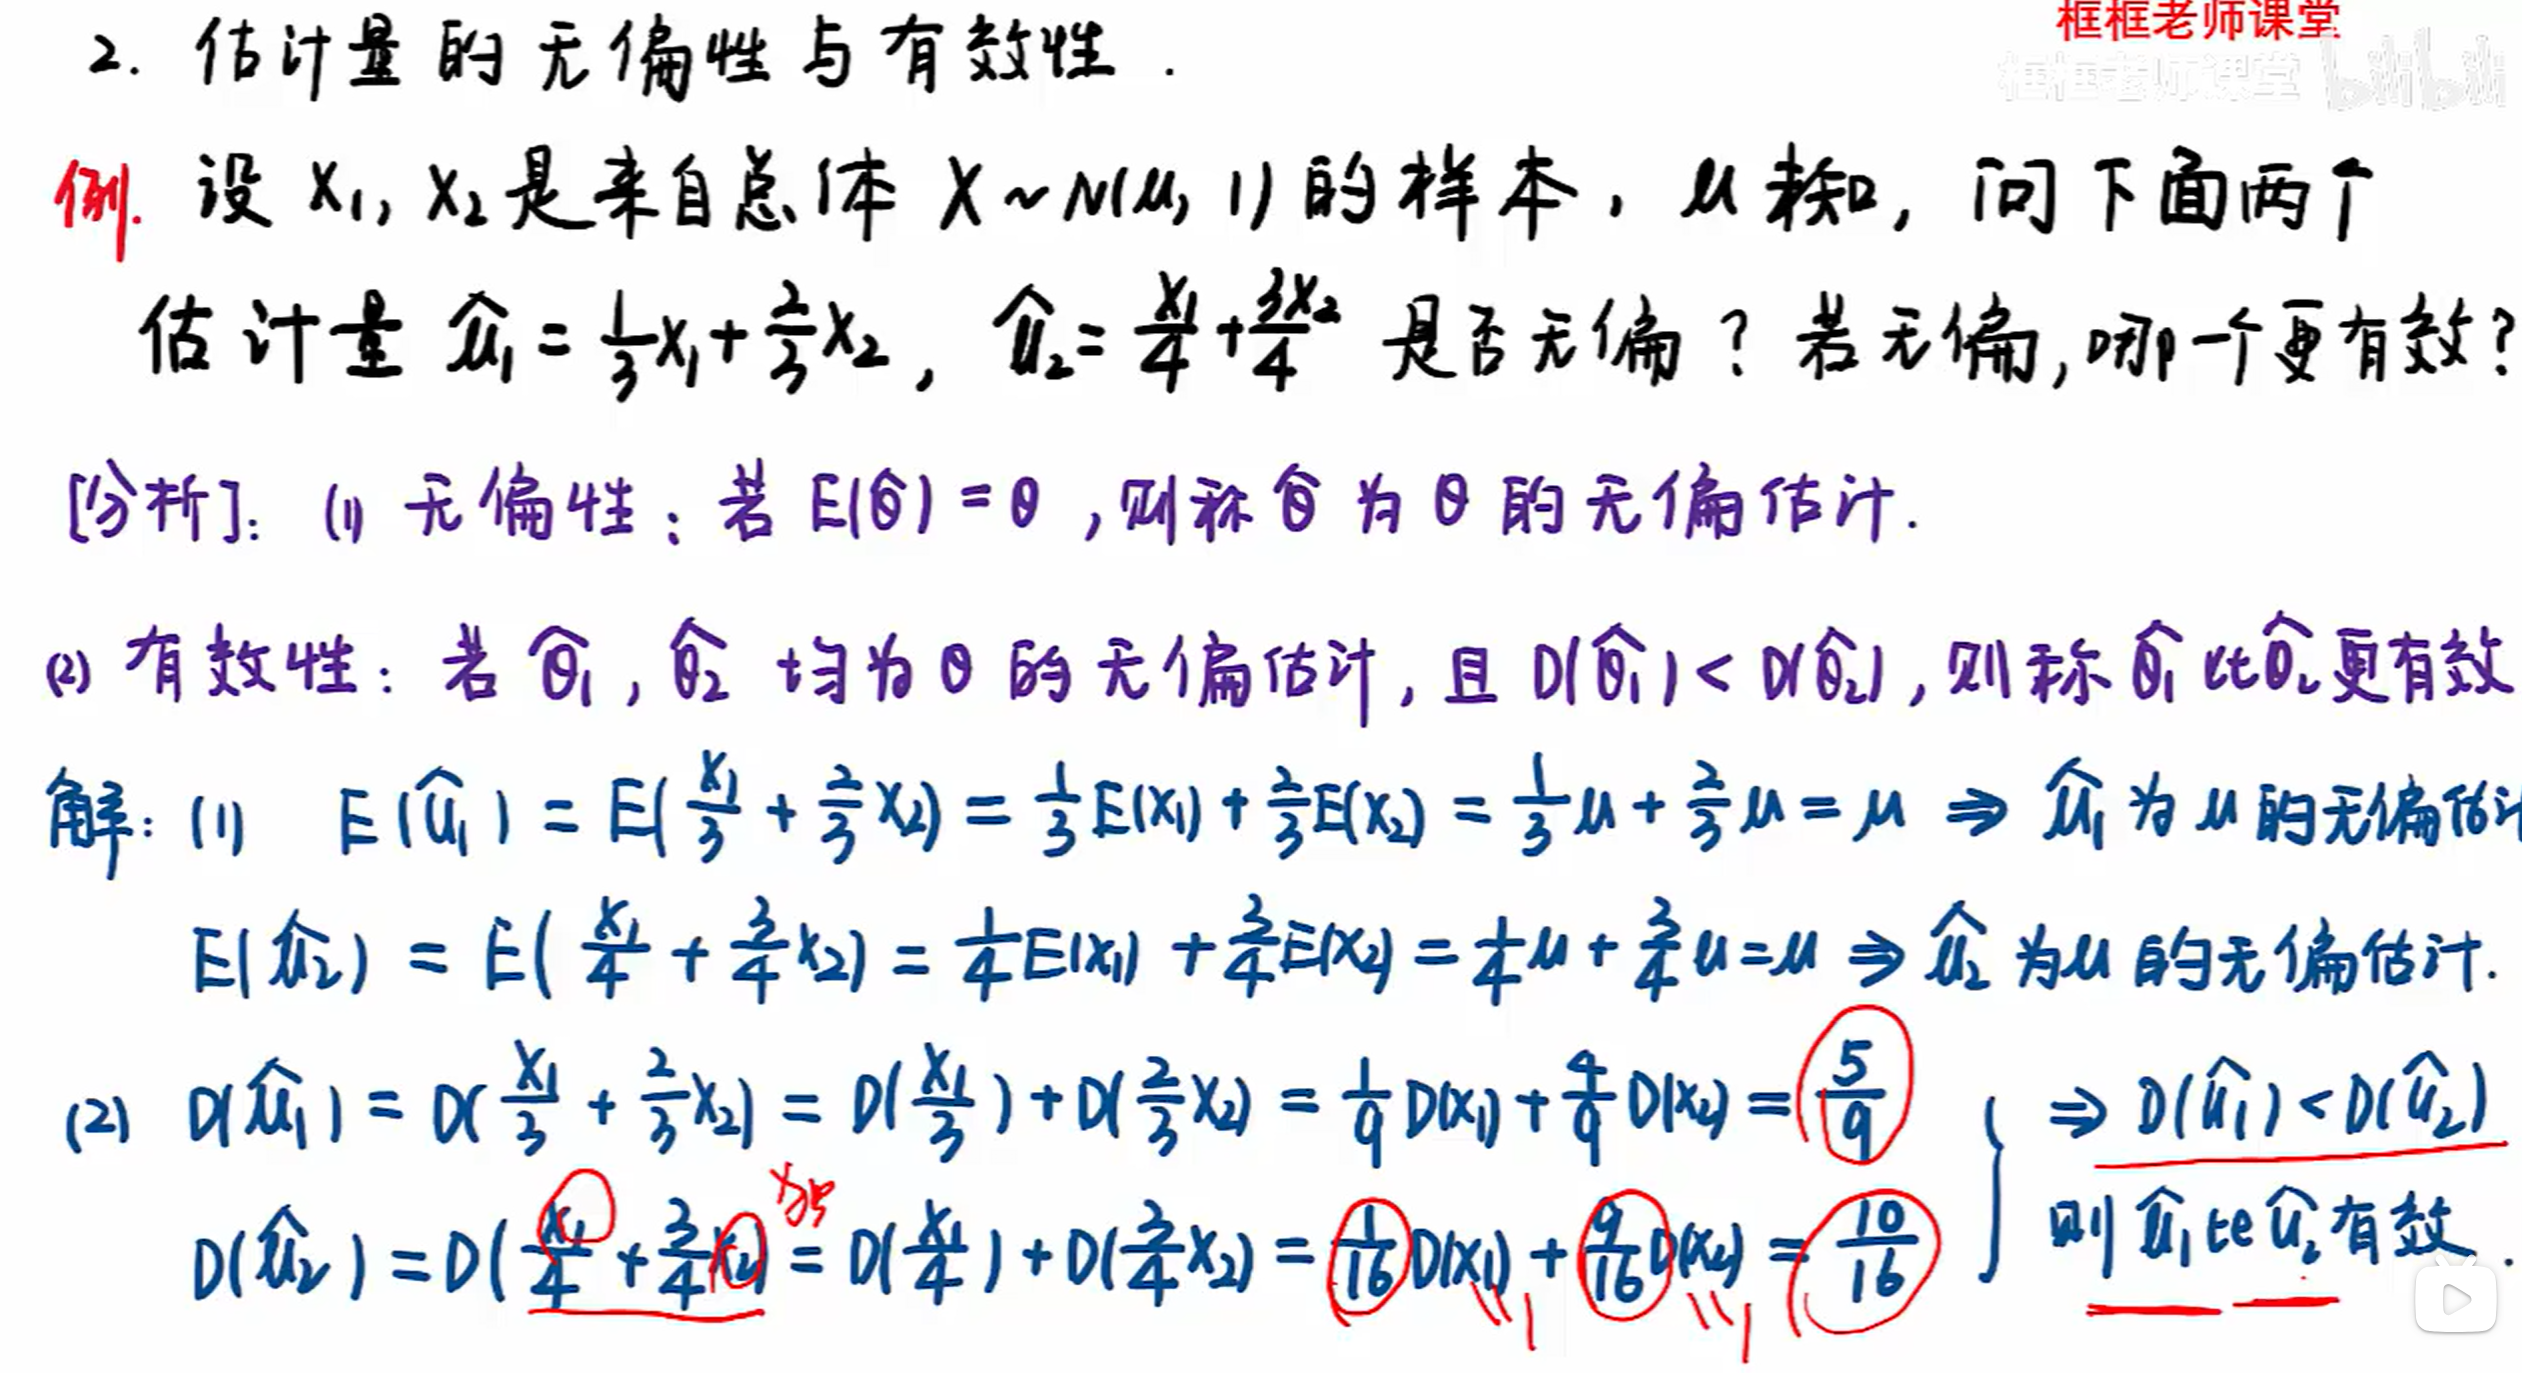 框框老师课堂
框框老师课堂 bilibili
2. 估计量的无偏性与有效性.
例. 设 X₁, X₂是来自总体 X~N(μ, 1) 的样本, μ 未知, 问下面两个
估计量 μ̂₁ = 1/3 X₁ + 2/3 X₂, μ̂₂ = X₁/4 + 3X₂/4 是否无偏? 若无偏, 哪一个更有效?
[分析]: (1) 无偏性: 若 E(θ̂) = θ, 则称 θ̂ 为 θ 的无偏估计.
(2) 有效性: 若 θ̂₁, θ̂₂ 均为 θ 的无偏估计, 且 D(θ̂₁) < D(θ̂₂), 则称 θ̂₁ 比 θ̂₂ 更有效
解: (1) E(μ̂₁) = E(X₁/3 + 2/3 X₂) = 1/3 E(X₁) + 2/3 E(X₂) = 1/3 μ + 2/3 μ = μ ⇒ μ̂₁ 为 μ 的无偏估计
E(μ̂₂) = E(X₁/4 + 3/4 X₂) = 1/4 E(X₁) + 3/4 E(X₂) = 1/4 μ + 3/4 μ = μ ⇒ μ̂₂ 为 μ 的无偏估计.
(2) D(μ̂₁) = D(X₁/3 + 2/3 X₂) = D(X₁/3) + D(2/3 X₂) = 1/9 D(X₁) + 4/9 D(X₂) = 5/9
⇒ D(μ̂₁) < D(μ̂₂)
D(μ̂₂) = D(X₁/4 + 3/4 X₂) = D(X₁/4) + D(3/4 X₂) = 1/16 D(X₁) + 9/16 D(X₂) = 10/16
则 μ̂₁ 比 μ̂₂ 有效.
1 1